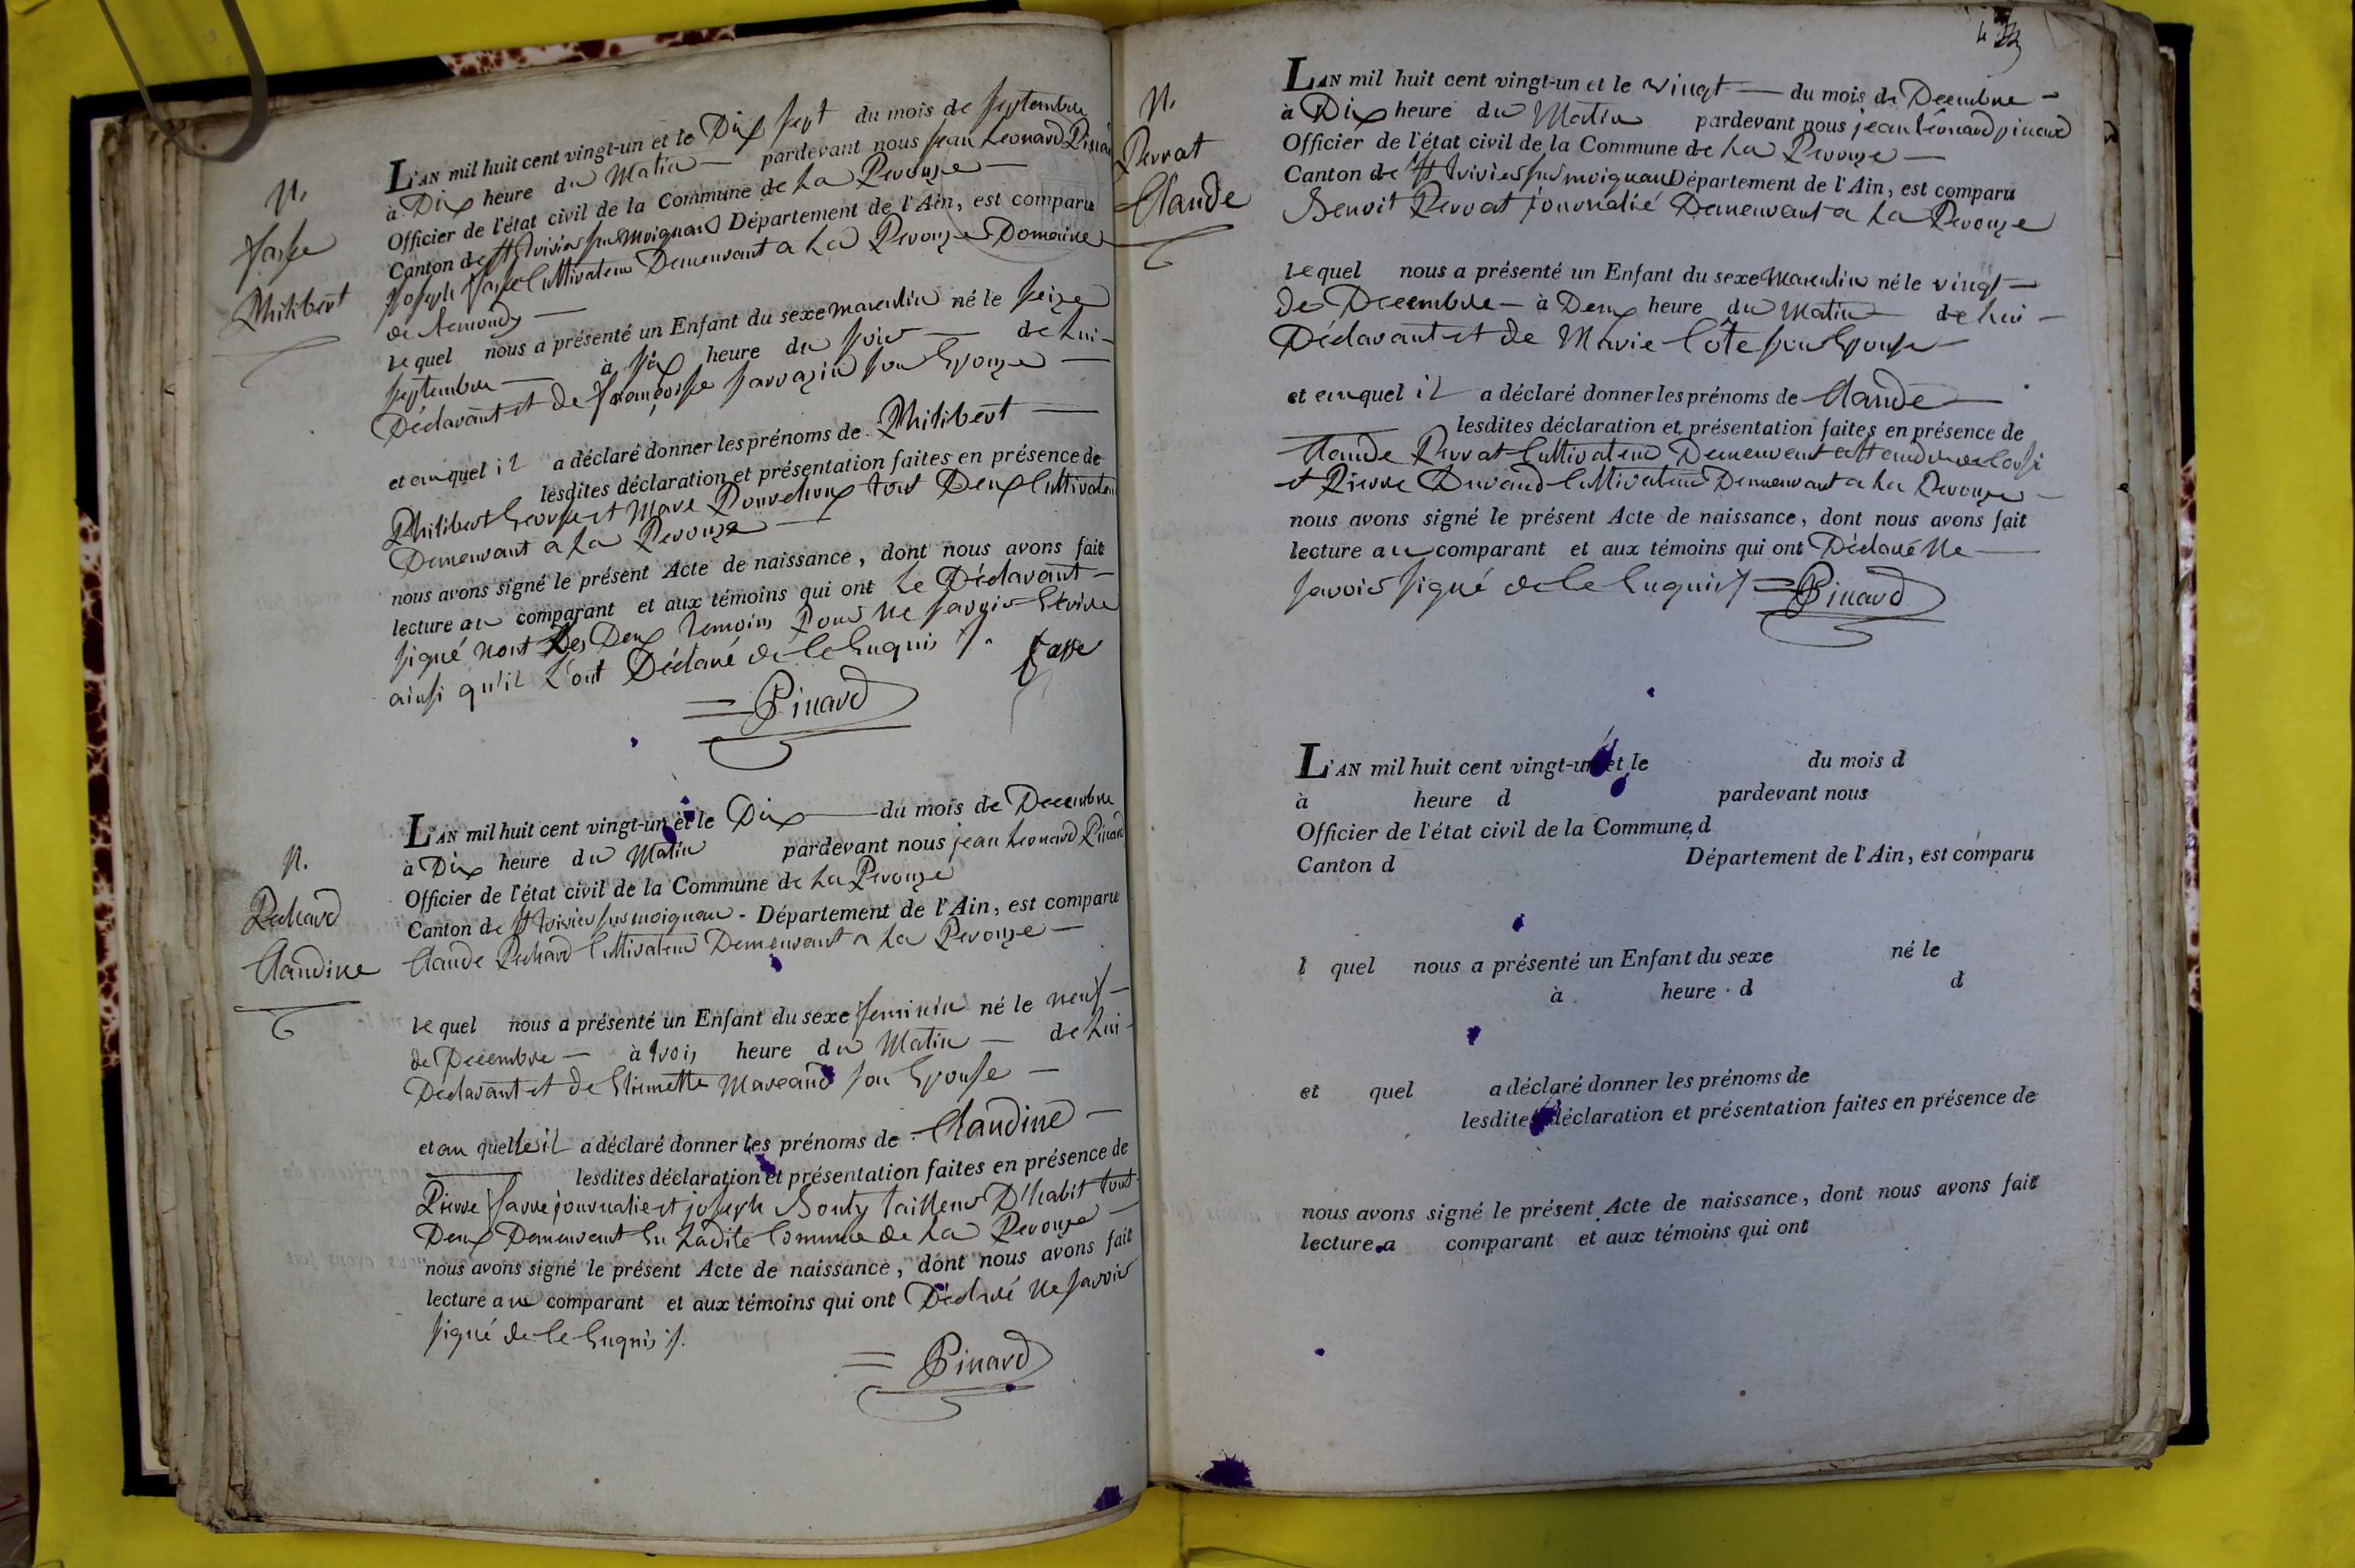 N.
fasse
Philibert
L'AN mil huit cent vingt-un et le Dix sept du mois de septembre
à Dix heure du Matin pardevant nous jean Leonard Pinard
Officier de l'état civil de la Commune de La Perouze
Canton de St trivier sur moignand Département de l'Ain, est comparu
joseph fasse Cultivateur Demeurant a La Perouze Domaine
de
lequel nous a présenté un Enfant du sexe masculin né le seize
septembre à six heure du soir de Lui
Déclarant et de françoisse sarrazin son Epouze
et auquel il a déclaré donner les prénoms de Philibert
lesdites déclaration et présentation faites en présence de
Philibert George et Marc tout Deux Cultivateur
Demeurant a La Perouze
nous avons signé le présent Acte de naissance, dont nous avons fait
lecture au comparant et aux témoins qui ont Le Déclarant
signé nont Les Deux temoins Pour ne savoir Ecrire
ainsi qu'il L'ont Déclaré de Ce Enquis ./. fasse
Pinard
N.
Pechard
Claudine
L'AN mil huit cent vingt-un et le Dix du mois de Decembre
à Dix heure du Matin pardevant nous jean Leonard Pinard
Officier de l'état civil de la Commune de La Perouze
Canton de St trivier sur moignan - Département de l'Ain, est comparu
Claude Pechard Cultivateur Demeurant a La Perouze
lequel nous a présenté un Enfant du sexe feminin né le neuf
de Decembre à trois heure du Matin de Lui
Déclarant et de Etiennette Mareand son Epouse
et au quelle il a déclaré donner les prénoms de Claudine
lesdites déclaration et présentation faites en présence de
Pierre favre journalie et joseph Bouty tailleur D'habit tout
Deux Demeurant En Ladite Commune de La Perouze
nous avons signé le présent Acte de naissance, dont nous avons fait
lecture au comparant et aux témoins qui ont Déclaré ne savoir
signé de Ce Enquis ./.
Pinard
N.
Perrat
Claude
L'AN mil huit cent vingt-un et le vingt du mois de Decembre
à Dix heure du Matin pardevant nous jean léonard pinard
Officier de l'état civil de la Commune de La Perouze
Canton de St trivier sur moignand Département de l'Ain, est comparu
Benoit Perrat journalié Demeurant a La Perouze
lequel nous a présenté un Enfant du sexe masculin né le vingt
de Decembre à Deux heure du Matin de Lui
Déclarant et de Marie Côte son Epouse
et auquel il a déclaré donner les prénoms de Claude
lesdites déclaration et présentation faites en présence de
Claude Perrat Cultivateur Demeurant
et Pierre Durand Cultivateur Demeurant a La Perouze
nous avons signé le présent Acte de naissance, dont nous avons fait
lecture au comparant et aux témoins qui ont Déclaré Ne
savoir signé de Ce Enquis ./. Pinard
L'AN mil huit cent vingt-un et le du mois d
à heure d pardevant nous
Officier de l'état civil de la Commune d
Canton d Département de l'Ain, est comparu
l quel nous a présenté un Enfant du sexe né le
à heure d d
et quel a déclaré donner les prénoms de
lesdites déclaration et présentation faites en présence de
nous avons signé le présent Acte de naissance, dont nous avons fait
lecture a comparant et aux témoins qui ont